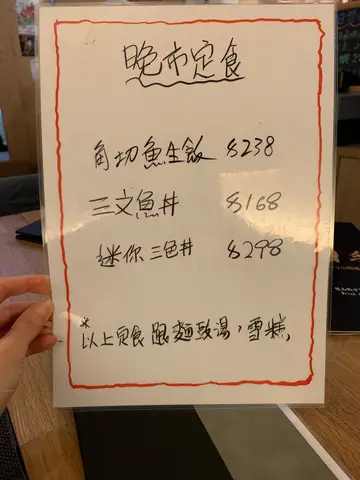 晚市定食
角切魚生飯 $238
三文魚丼 $168
迷你三色丼 $298
*以上定食跟麵豉湯，雪糕。